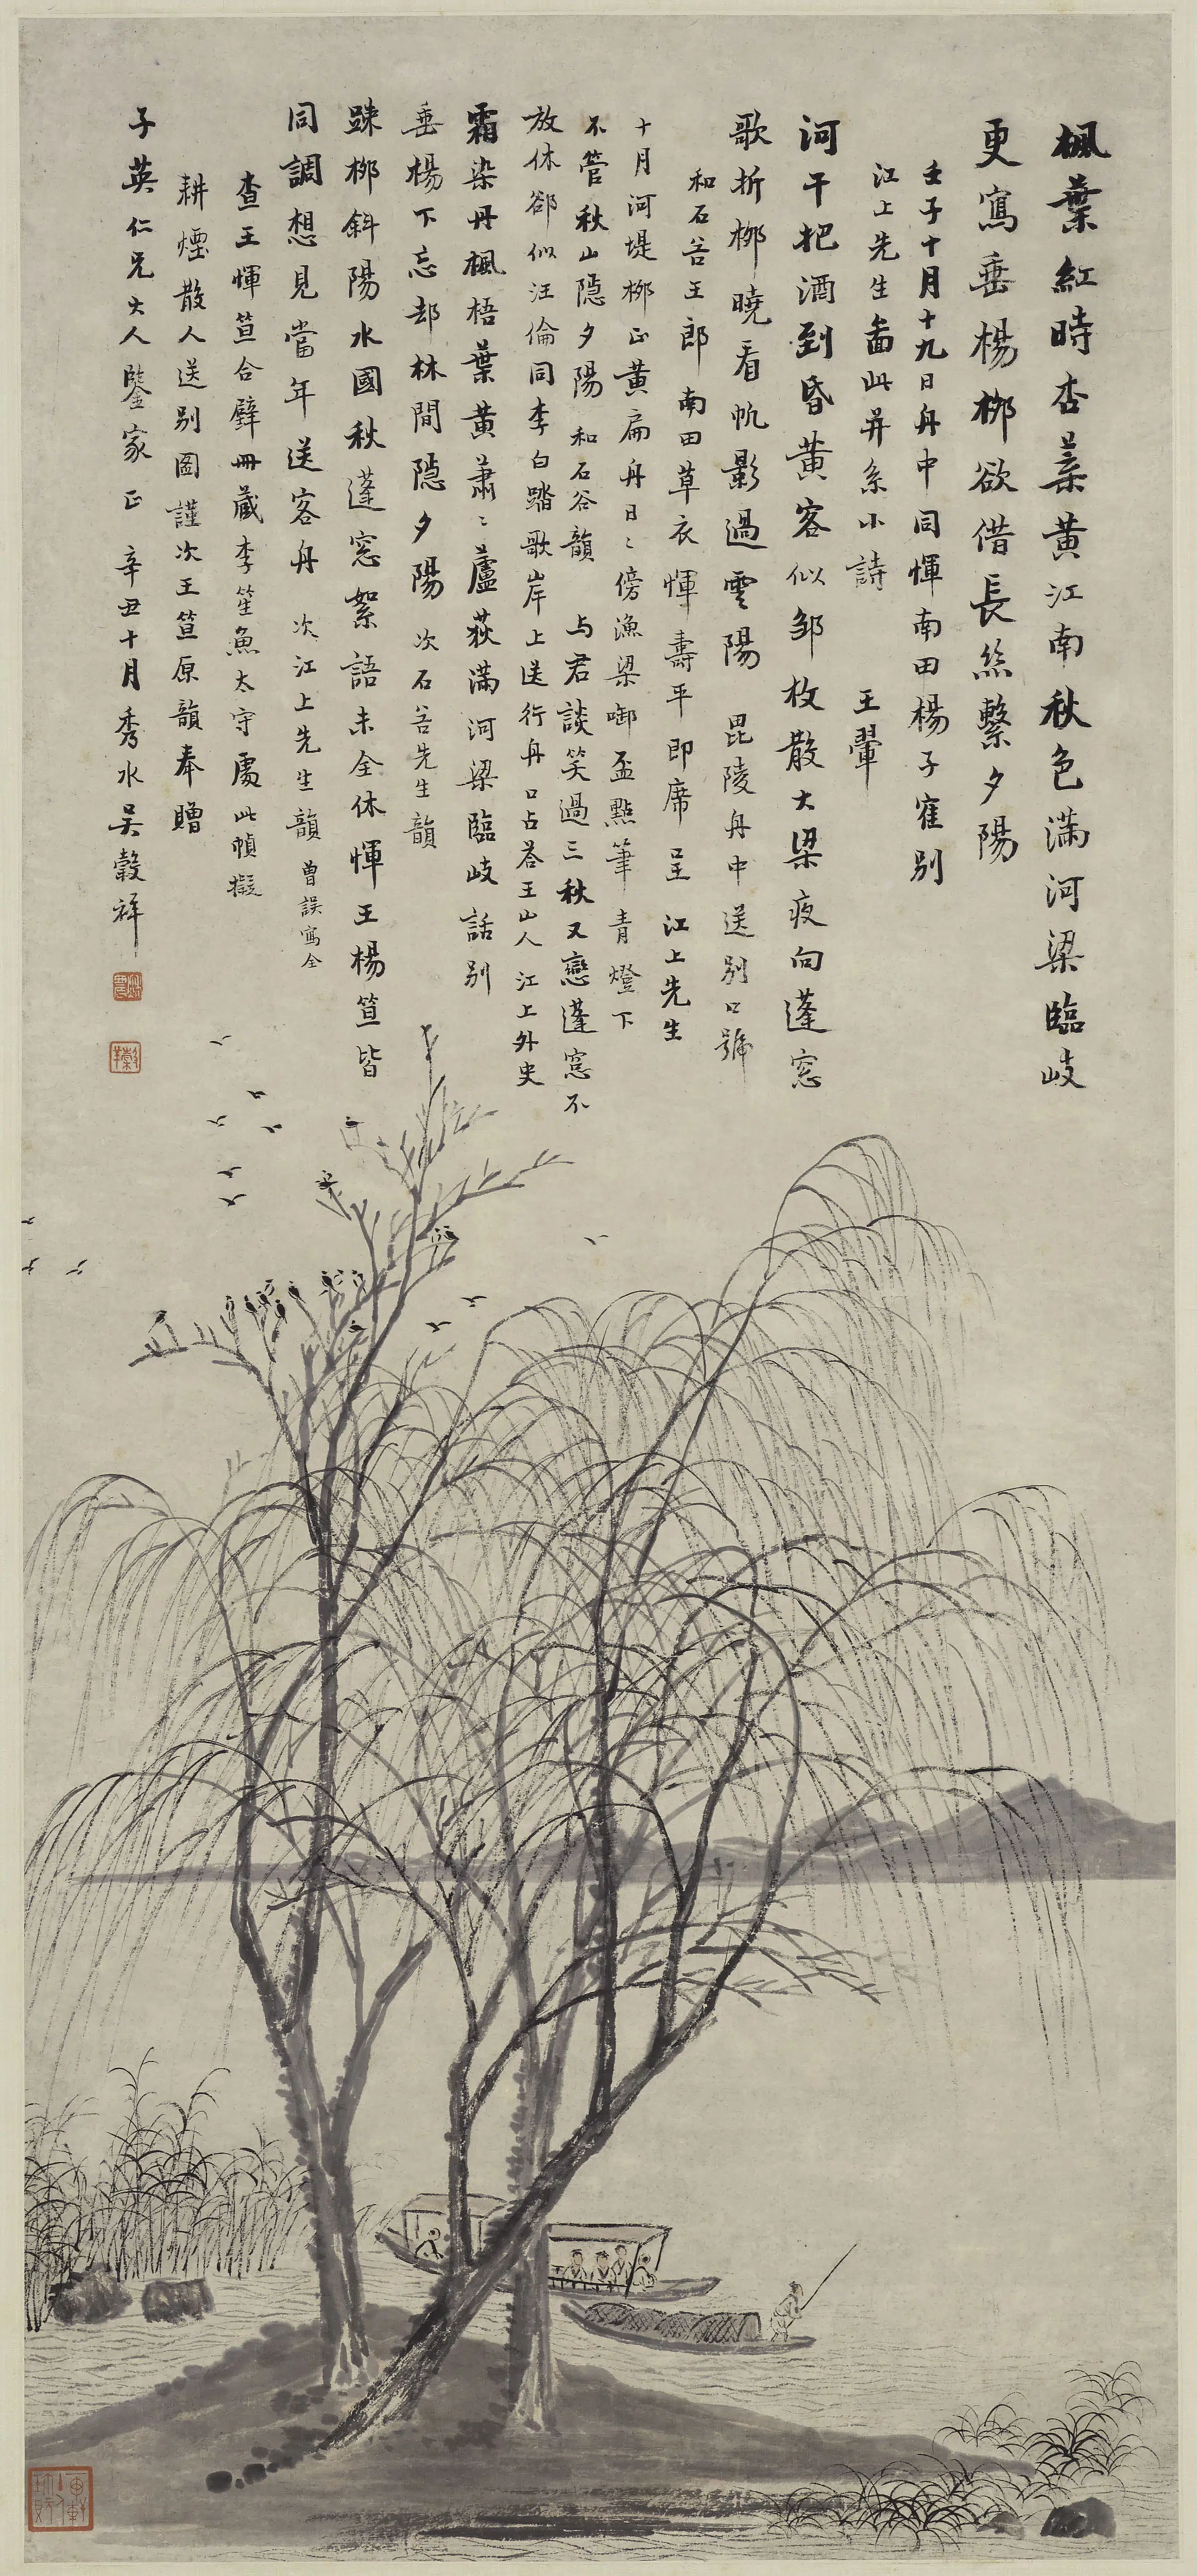 楓葉紅時杏葉黃江南秋色滿河梁臨岐
更寫垂楊柳欲借長絲繫夕陽
壬子十月十九日舟中同惲南田楊子寉別
江上先生畵此并系小詩 王翬
河干把酒到昏黃客似鄒枚散大梁夜向蓬窓
歌折柳曉看帆影過雲陽 毘陵舟中送別口號
和石谷王郎南田草衣惲壽平即席呈江上先生
十月河堤柳正黃扁舟日〻傍漁梁啣盃點筆青燈下
不管秋山隱夕陽 和石谷韻 與君談笑過三秋又戀蓬窓不
放休郤似汪倫同李白踏歌岸上送行舟 口占答王山人 江上外史
霜染丹楓梧葉黃蕭〻蘆荻滿河梁臨岐話別
垂楊下忘却林間隱夕陽 次石谷先生韻
疎柳斜陽水國秋蓬窓絮語未全休惲王楊笪皆
同調想見當年送客舟 次江上先生韻 曾誤寫全
查王惲笪合璧冊藏李笙魚太守處此幀擬
耕煙散人送別圖謹次王笪原韻奉贈
子英仁兄大人鑒家正 辛丑十月秀水吴穀祥